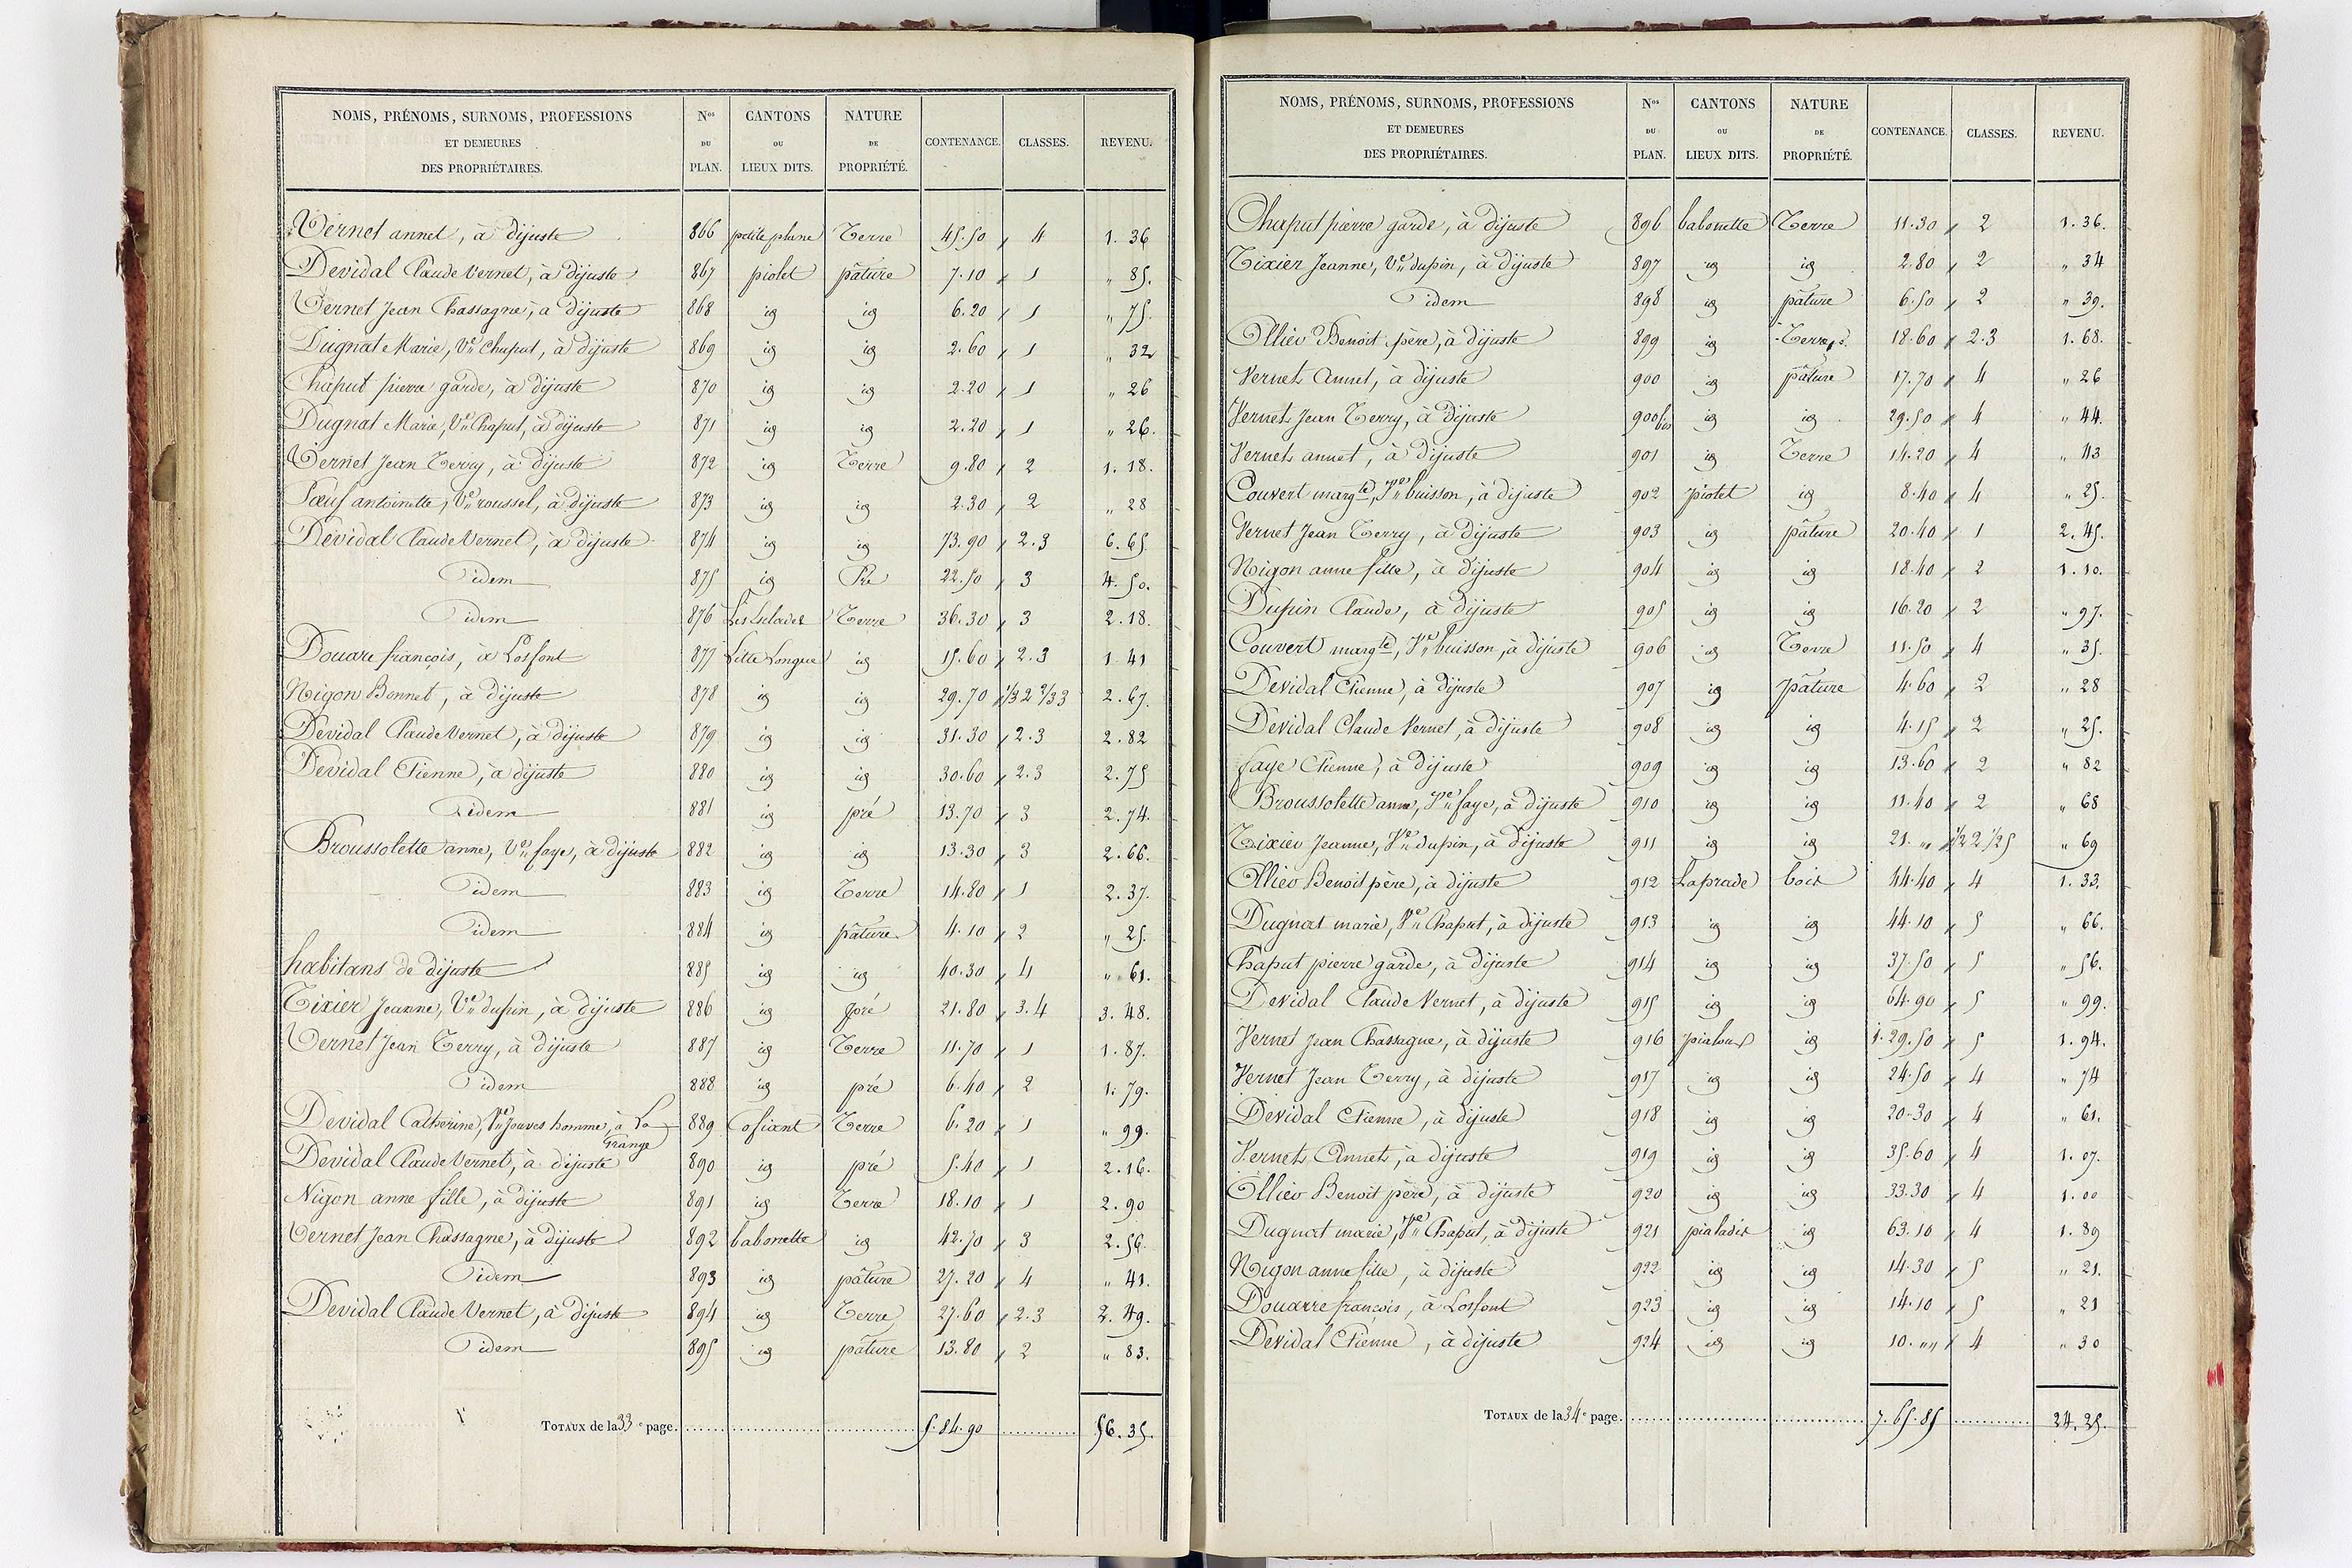 NOMS, PRÉNOMS, SURNOMS, PROFESSIONS ET DEMEURES DES PROPRIÉTAIRES. Nos DU PLAN. CANTONS OU LIEUX DITS. NATURE DE PROPRIÉTÉ. CONTENANCE. CLASSES. REVENU.
Vernet annet, à dijuste 866 petite plane Terre 45.50 4 1.36
Devidal Claude Vernet, à dijuste 867 piolet pâture 7.10 1 " 85.
Vernet Jean Chassagne, à dijuste 868 id id 6.20 1 " 75.
Dugnat Marie, Ve Chaput, à dijuste 869 id id 2.60 1 " 32
Chaput pierre garde, à dijuste 870 id id 2.20 1 " 26
Dugnat Marie, Ve Chaput, à dijuste 871 id id 2.20 1 " 26.
Vernet Jean Terry, à dijuste 872 id Terre 9.80 2 1.18.
antoinette, Ve roussel, à dijuste 873 id id 2.30 2 " 28
Devidal Claude Vernet, à dijuste 874 id id 73.90 2.3 6.65.
idem 875 id Pré 22.50 3 4.50.
idem 876 Terre 36.30 3 2.18.
Douare françois, à Losfont 877 Longue id 15.60 2.3 1.41
Nigon Bonnet, à dijuste 878 id id 29.70 1/3 2 2/3 3 2.67.
Devidal Claude Vernet, à dijuste 879 id id 31.30 2.3 2.82
Devidal Etienne, à dijuste 880 id id 30.60 2.3 2.75
idem 881 id pré 13.70 3 2.74.
Broussolette anne, Ve faye, à dijuste 882 id id 13.30 3 2.66.
idem 883 id Terre 14.80 1 2.37.
idem 884 id pâture 4.10 2 " 25.
habitans de dijuste 885 id id 40.30 4 " 61.
Tixier Jeanne, Ve dupin, à dijuste 886 id pré 21.80 3.4 3.48.
Vernet Jean Terry, à dijuste 887 id Terre 11.70 1 1.87.
idem 888 id pré 6.40 2 1.79.
Devidal Catherine, Ve jouves homme, à La Frange 889 Cofiant Terre 6.20 1 " 99.
Devidal Claude Vernet, à dijuste 890 id pré 5.40 1 2.16.
Nigon anne fille, à dijuste 891 id Terre 18.10 1 2.90
Vernet Jean Chassagne, à dijuste 892 babonette id 42.70 3 2.56.
idem 893 id pâture 27.20 4 " 41.
Devidal Claude Vernet, à dijuste 894 id Terre 27.60 2.3 2.49.
idem 895 id pâture 13.80 2 " 83.
TOTAUX de la 33e page. 5.84.90 56.35.
NOMS, PRÉNOMS, SURNOMS, PROFESSIONS ET DEMEURES DES PROPRIÉTAIRES. Nos DU PLAN. CANTONS OU LIEUX DITS. NATURE DE PROPRIÉTÉ. CONTENANCE. CLASSES. REVENU.
Chaput pierre garde, à dijuste 896 babonette Terre 11.30 2 1.36.
Tixier Jeanne, Ve dupin, à dijuste 897 id id 2.80 2 " 34
idem 898 id pâture 6.50 2 " 39.
Ollier Benoit père, à dijuste 899 id Terre 18.60 2.3 1.68.
Vernet Annet, à dijuste 900 id pâture 17.70 4 " 26
Vernet Jean Terry, à dijuste 900 bis id id 29.50 4 " 44.
Vernet annet, à dijuste 901 id Terre 14.20 4 " 43
Couvert margte, Ve buisson, à dijuste 902 piolet id 8.40 4 " 25.
Vernet Jean Terry, à dijuste 903 id pâture 20.40 1 2.45.
Nigon anne fille, à dijuste 904 id id 18.40 2 1.10.
Dupin Claude, à dijuste 905 id id 16.20 2 " 97.
Couvert margte, Ve buisson, à dijuste 906 id Terre 11.50 4 " 35.
Devidal Etienne, à dijuste 907 id pâture 4.60 2 " 28
Devidal Claude Vernet, à dijuste 908 id id 4.15 2 " 25.
faye Etienne, à dijuste 909 id id 13.60 2 " 82
Broussolette anne, Ve faye, à dijuste 910 id id 11.40 2 " 68
Tixier Jeanne, Ve dupin, à dijuste 911 id id 21. " 1/2 2 1/2 5 " 69
Ollier Benoit père, à dijuste 912 Laprade bois 44.40 4 1.33.
Dugnat marie, Ve Chaput, à dijuste 913 id id 44.10 5 " 66.
Chaput pierre garde, à dijuste 914 id id 37.50 5 " 56.
Devidal Claude Vernet, à dijuste 915 id id 64.90 5 " 99.
Vernet Jean Chassagne, à dijuste 916 pialoux id 1.29.50 5 1.94.
Vernet Jean Terry, à dijuste 917 id id 24.50 4 " 74
Devidal Etienne, à dijuste 918 id id 20.30 4 " 61.
Vernet Annet, à dijuste 919 id id 35.60 4 1.07.
Ollier Benoit père, à dijuste 920 id id 33.30 4 1.00
Dugnat marie, Ve Chaput, à dijuste 921 pialadis id 63.10 4 1.89
Nigon anne fille, à dijuste 922 id id 14.30 5 " 21.
Douarre françois, à Losfont 923 id id 14.10 5 " 21
Devidal Etienne, à dijuste 924 id id 10. " 4 " 30
TOTAUX de la 34e page. 7.65.85 24.25.